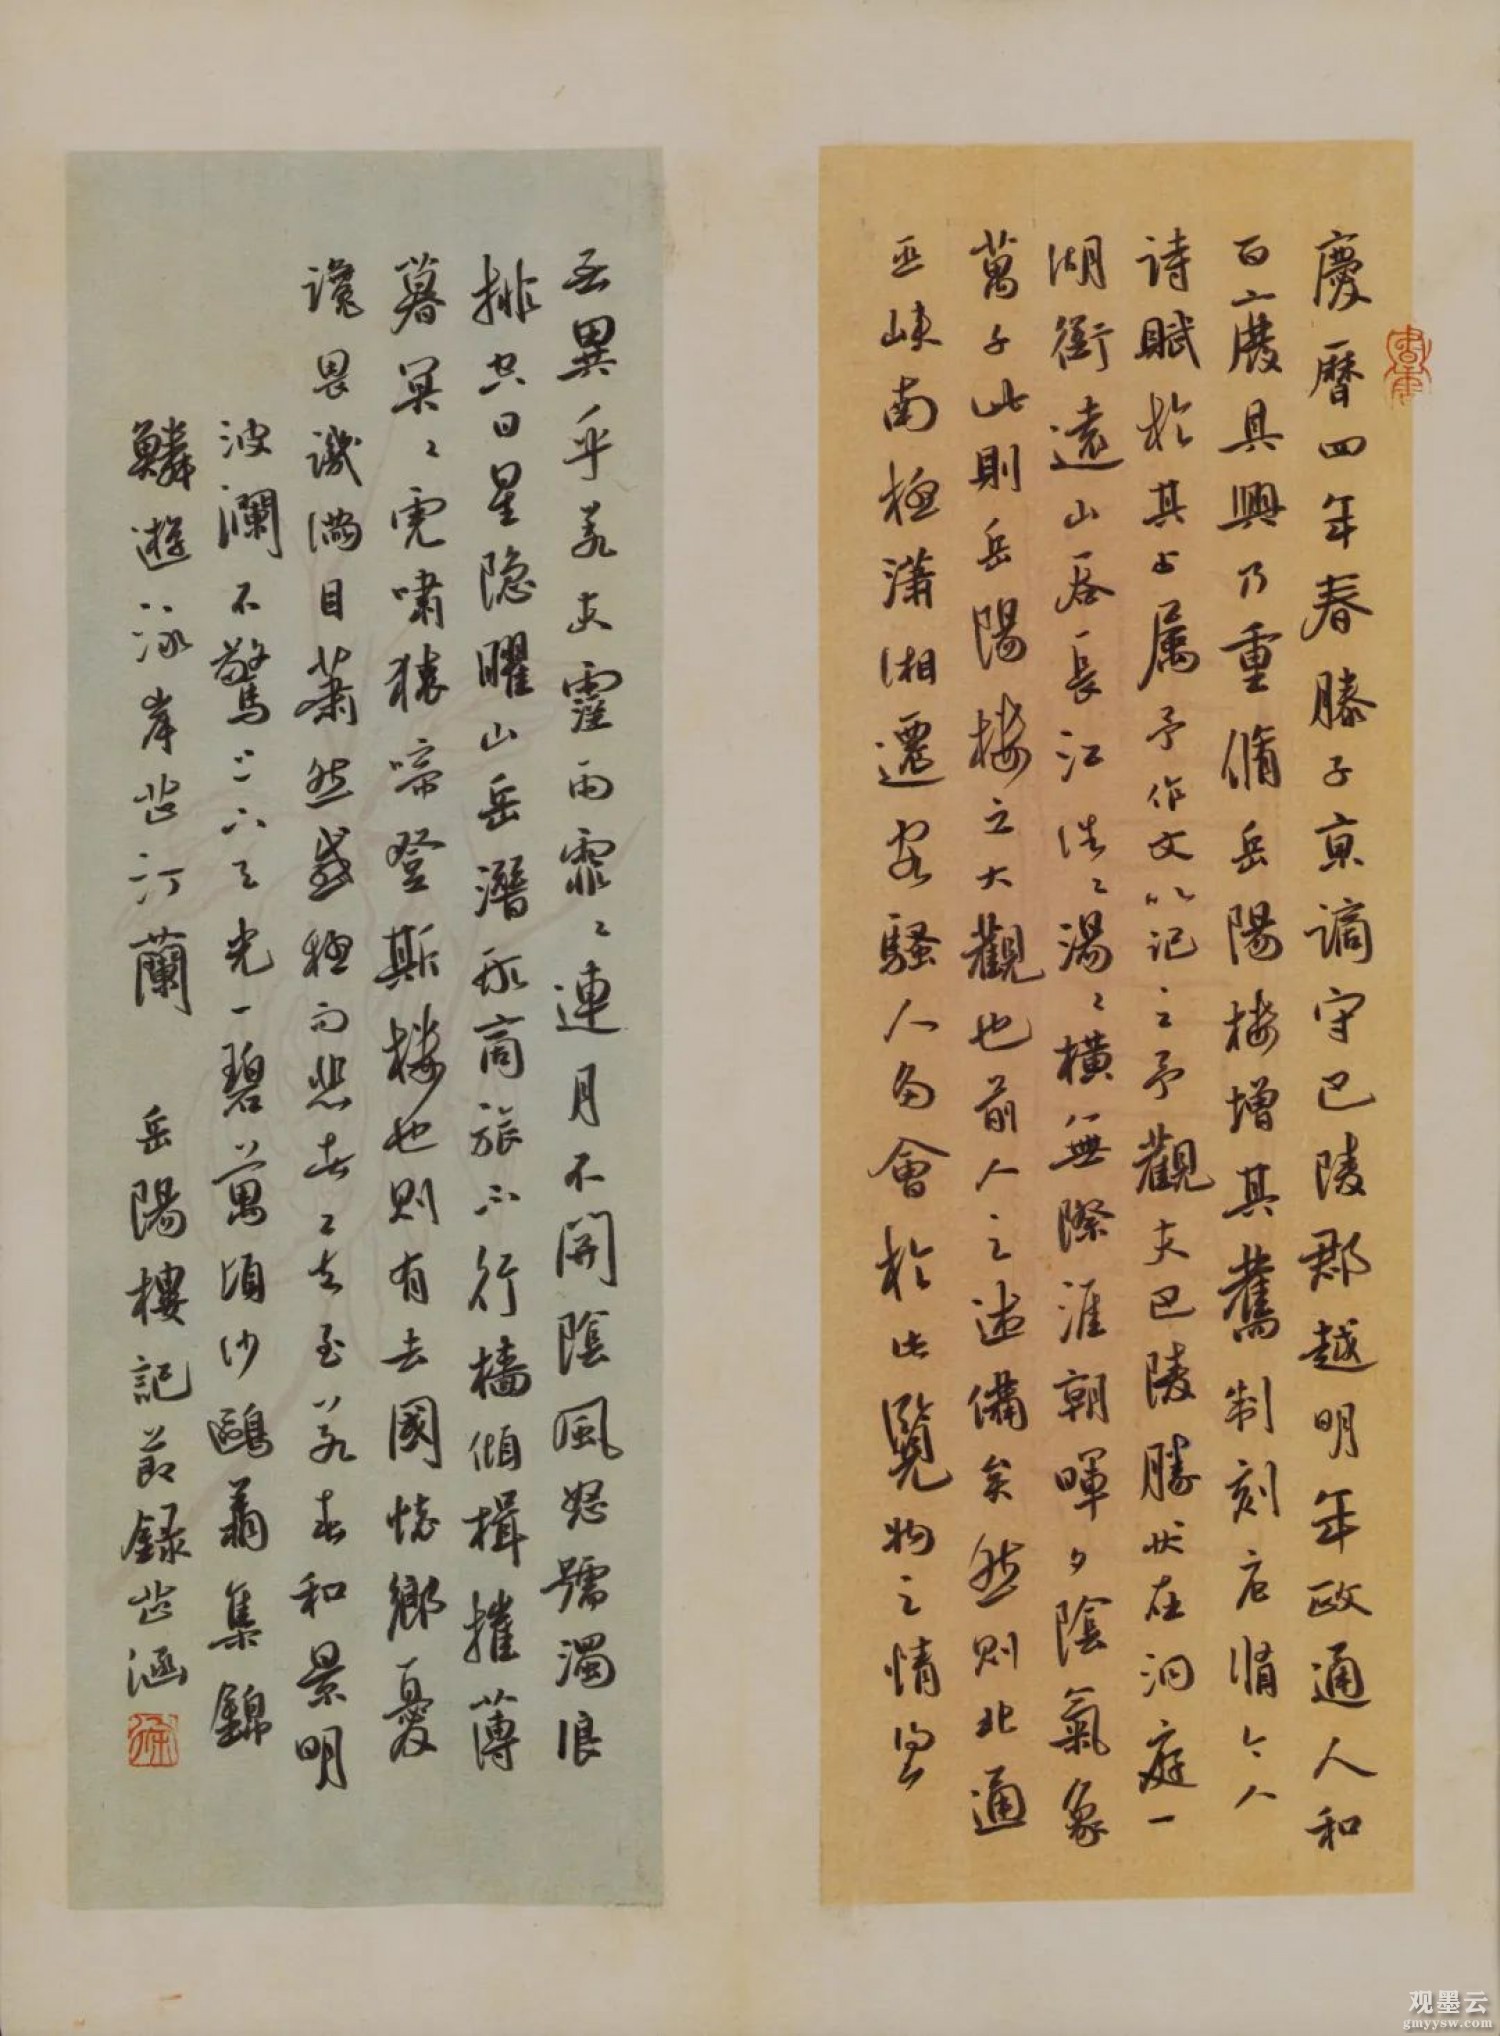 慶曆四年春滕子京謫守巴陵郡越明年政通人和
百廢具興乃重脩岳陽樓增其舊制刻唐賢今人
詩賦於其上屬予作文以記之予觀夫巴陵勝狀在洞庭一
湖銜遠山吞長江浩〻湯〻橫無際涯朝暉夕陰氣象
萬千此則岳陽樓之大觀也前人之述備矣然則北通
巫峽南極瀟湘遷客騷人多會於此覽物之情得
無異乎若夫霪雨霏〻連月不開陰風怒號濁浪
排空日星隱曜山岳潛形商旅不行檣傾楫摧薄
暮冥〻虎嘯猿啼登斯樓也則有去國懷鄉憂
讒畏譏滿目蕭然感極而悲者〻矣至若春和景明
波瀾不驚上下天光一碧萬頃沙鷗翔集錦
鱗遊泳岸芷汀蘭 岳陽樓記節錄 芷涵
观墨云
gmyysw.com